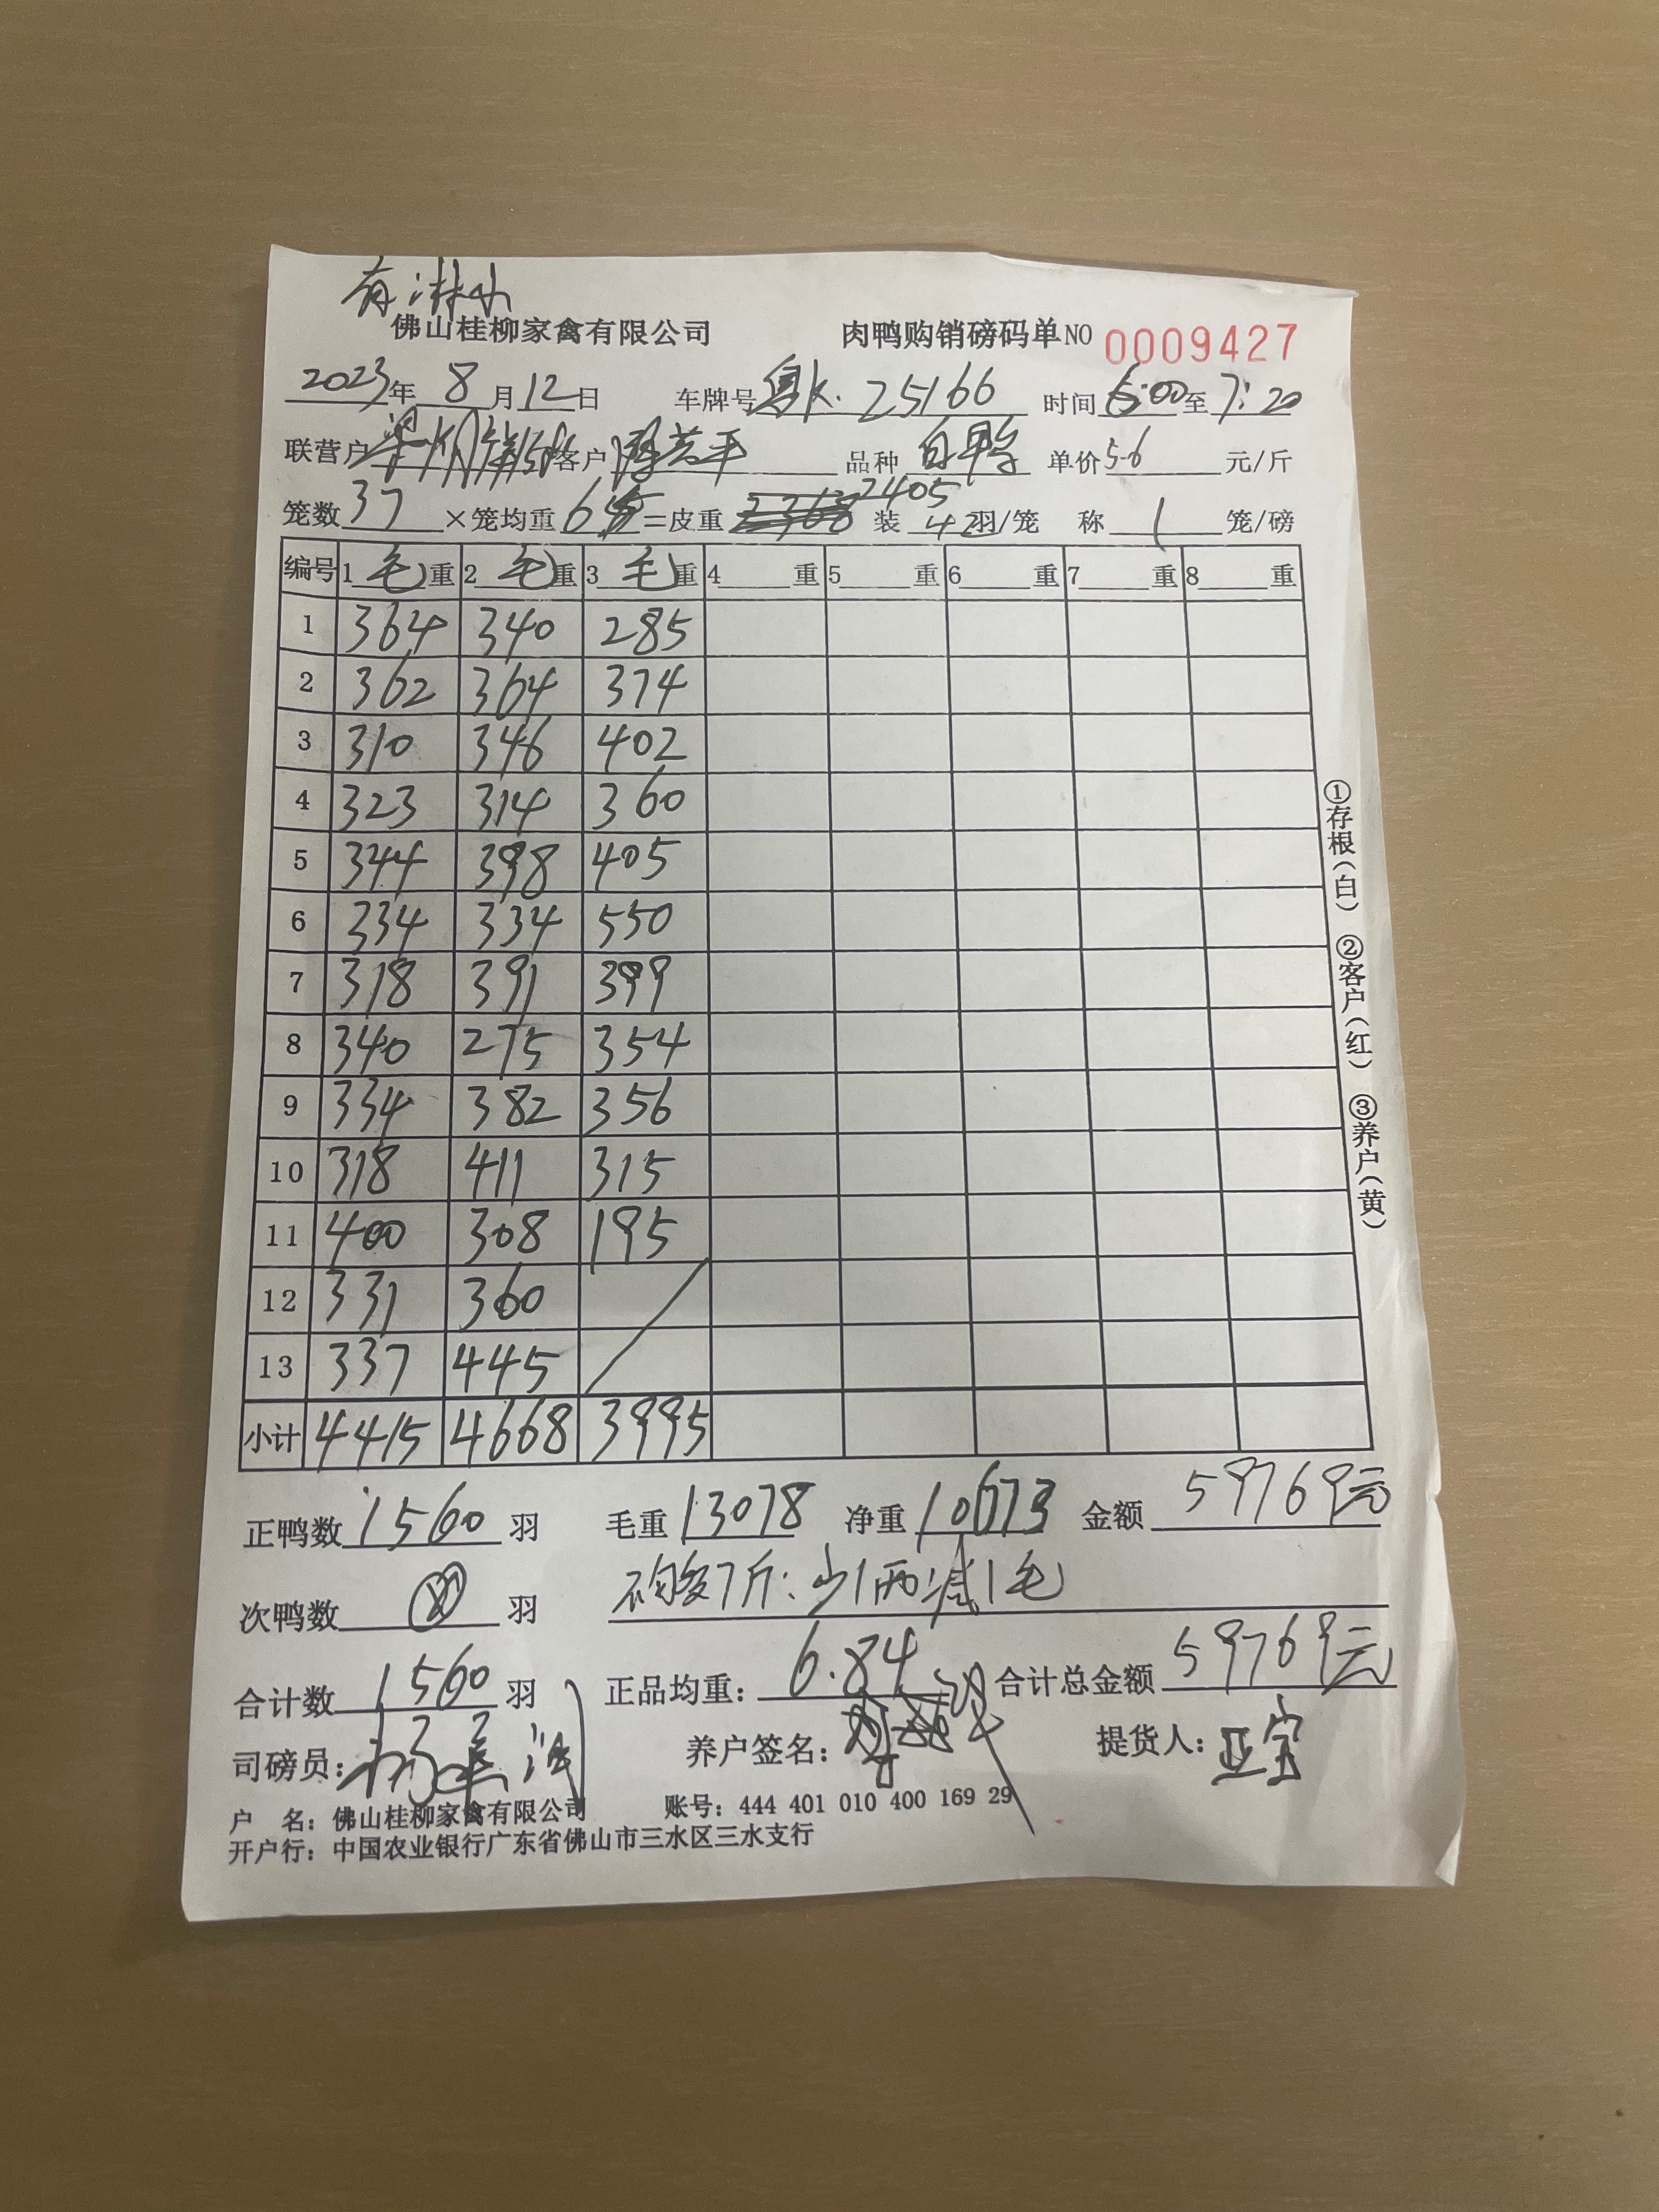 有淋水
佛山桂柳家禽有限公司 肉鸭购销磅码单NO 0009427
2023年 8月12日 车牌号粤K·25166 时间6:00至7:20
联营户 客户 品种 白鸭 单价5.6元/斤
笼数37×笼均重65=皮重 2405 装42羽/笼 称1笼/磅
编号 1毛重 2毛重 3毛重 4重 5重 6重 7重 8重
1 364 340 285
2 362 364 374
3 310 346 402
4 323 314 360
5 344 398 405
6 334 334 550
7 318 391 399
8 340 275 354
9 334 382 356
10 318 411 315
11 400 308 195
12 331 360
13 337 445
小计 4415 4668 3995
正鸭数1560羽 毛重13078 净重10673 金额59769元
次鸭数 羽 7斤:少1两减1毛
合计数1560羽 正品均重:6.84 合计总金额59769元
司磅员: 养户签名: 提货人:亚宝
户 名:佛山桂柳家禽有限公司 账号:444 401 010 400 169 29
开户行:中国农业银行广东省佛山市三水区三水支行
①存根(白) ②客户(红) ③养户(黄)